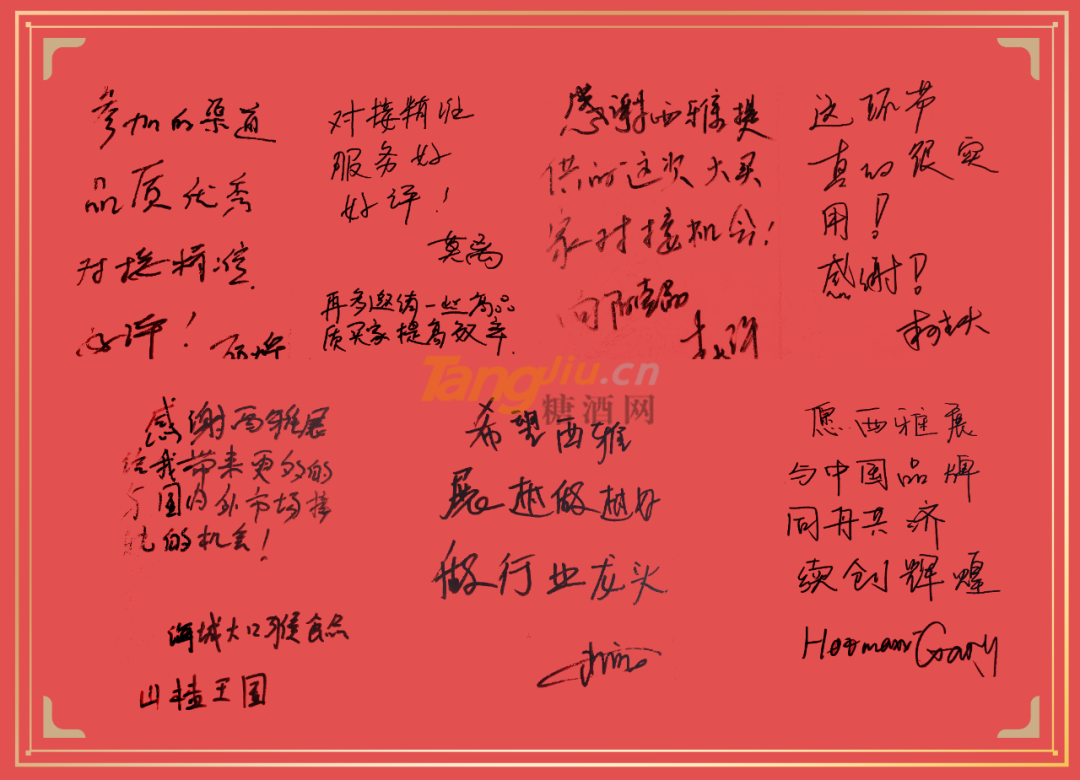 参加的渠道
品质优秀
对接精准
好评!
对接精准
服务好
好评!
莫离
再多邀请一些高品
质买家提高效率.
感谢西雅展提
供的这次大买
家对接机会!
向阳食品
这环节
真的很实
用!
感谢!
TangJiu.cn
糖酒网
感谢西雅展
给我带来更多的
与国内外市场接
触的机会!
海城大口猴食品
山楂王国
希望西雅
展越做越好
做行业龙头
愿西雅展
与中国品牌
同舟共济
续创辉煌
Hooman Grany